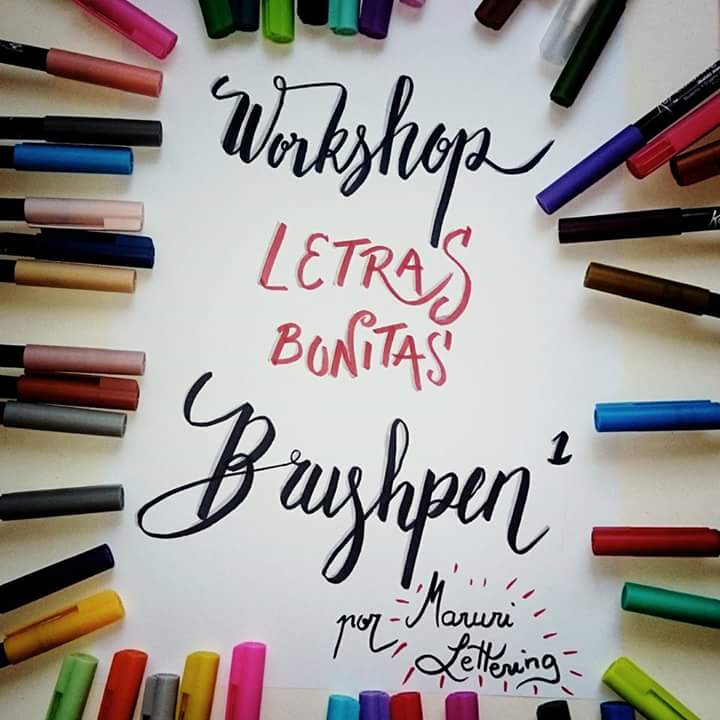 Workshop
LETRAS
BONITAS
Brushpen 1
por Maruri
Lettering